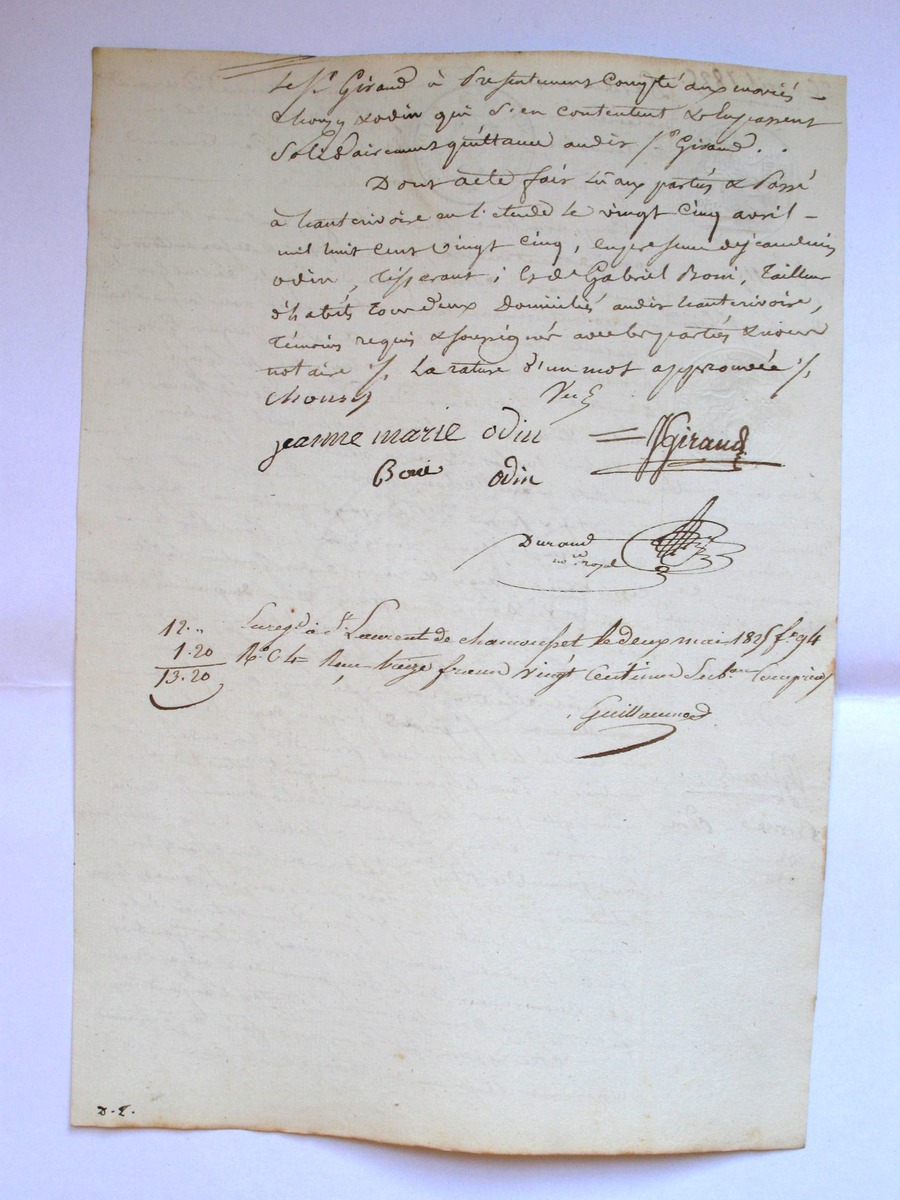 le Sr. Giraud à présentement compté aux mariés
Chouzy & odin qui s'en contentent & en passent
Solidairement quittance audit Sr. Giraud.
Dont acte fait lû aux partiés & Passé
à hauterivoire en l'etude le vingt cinq avril
mil huit cent vingt cinq, en presence de
odin, Tisserant, & de Gabriel Boni, Tailleur
d'habits tous deux Domiciliés audit hauterivoire,
témoins requis & soussignés avec les partiés & nous
notaire ./. La rature d'un mot approuvée ./.
jeanne marie odin JGiraud
odin
Durand
nore royal
12.."
1.20
13.20
Enregé à St. Laurent de chamousset le deux mai 1825 fo 94
Ro C 4= Reçu treize francs vingt Centimes Subon Comprise
Guillaumot
D.T.